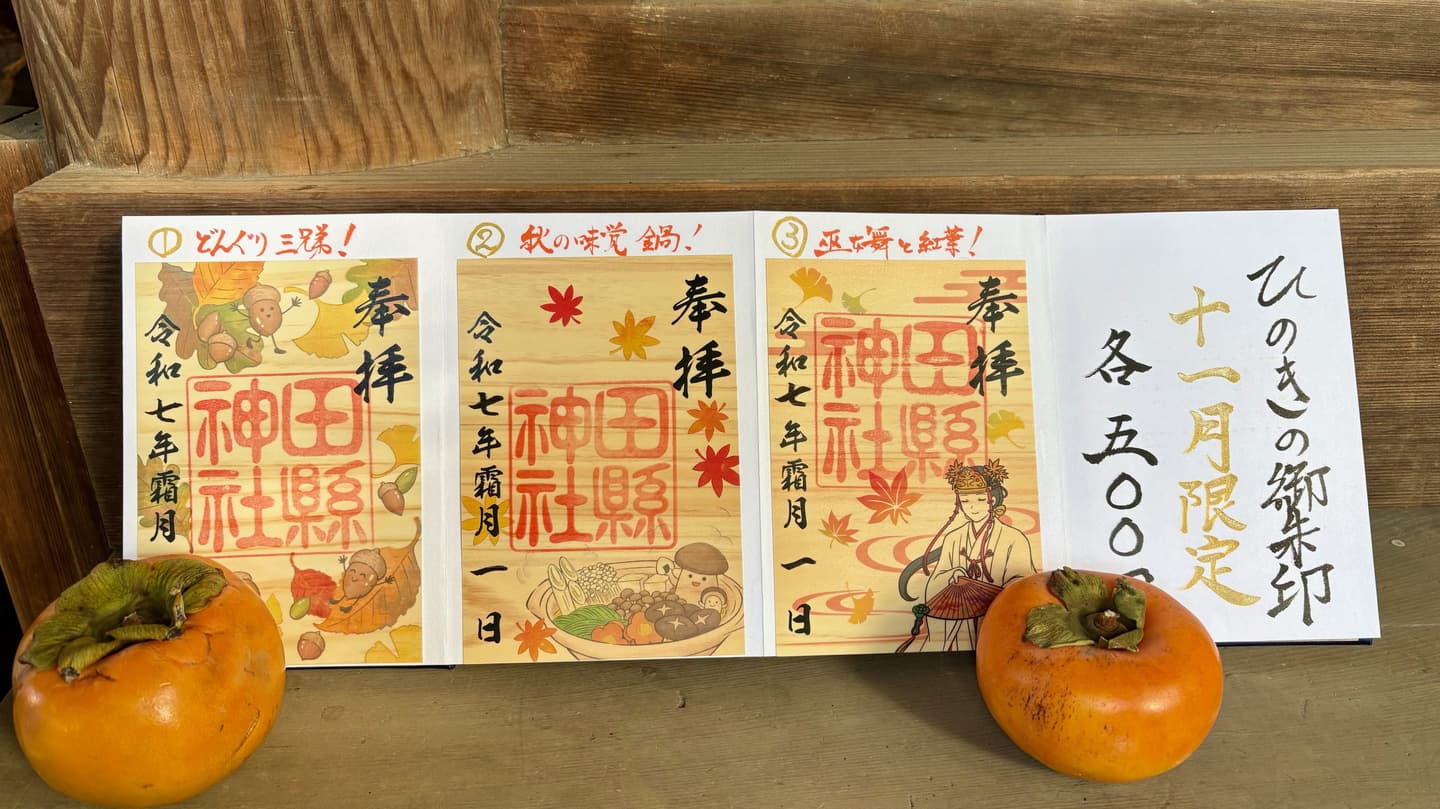 ① どんぐり三兄弟！
奉拝
田縣
神社
令和七年霜月
② 秋の味覚 鍋！
奉拝
田縣
神社
令和七年霜月一日
③ 巫女舞と紅葉！
奉拝
田縣
神社
令和七年霜月一日
ひのきの御朱印
十一月限定
各五〇〇